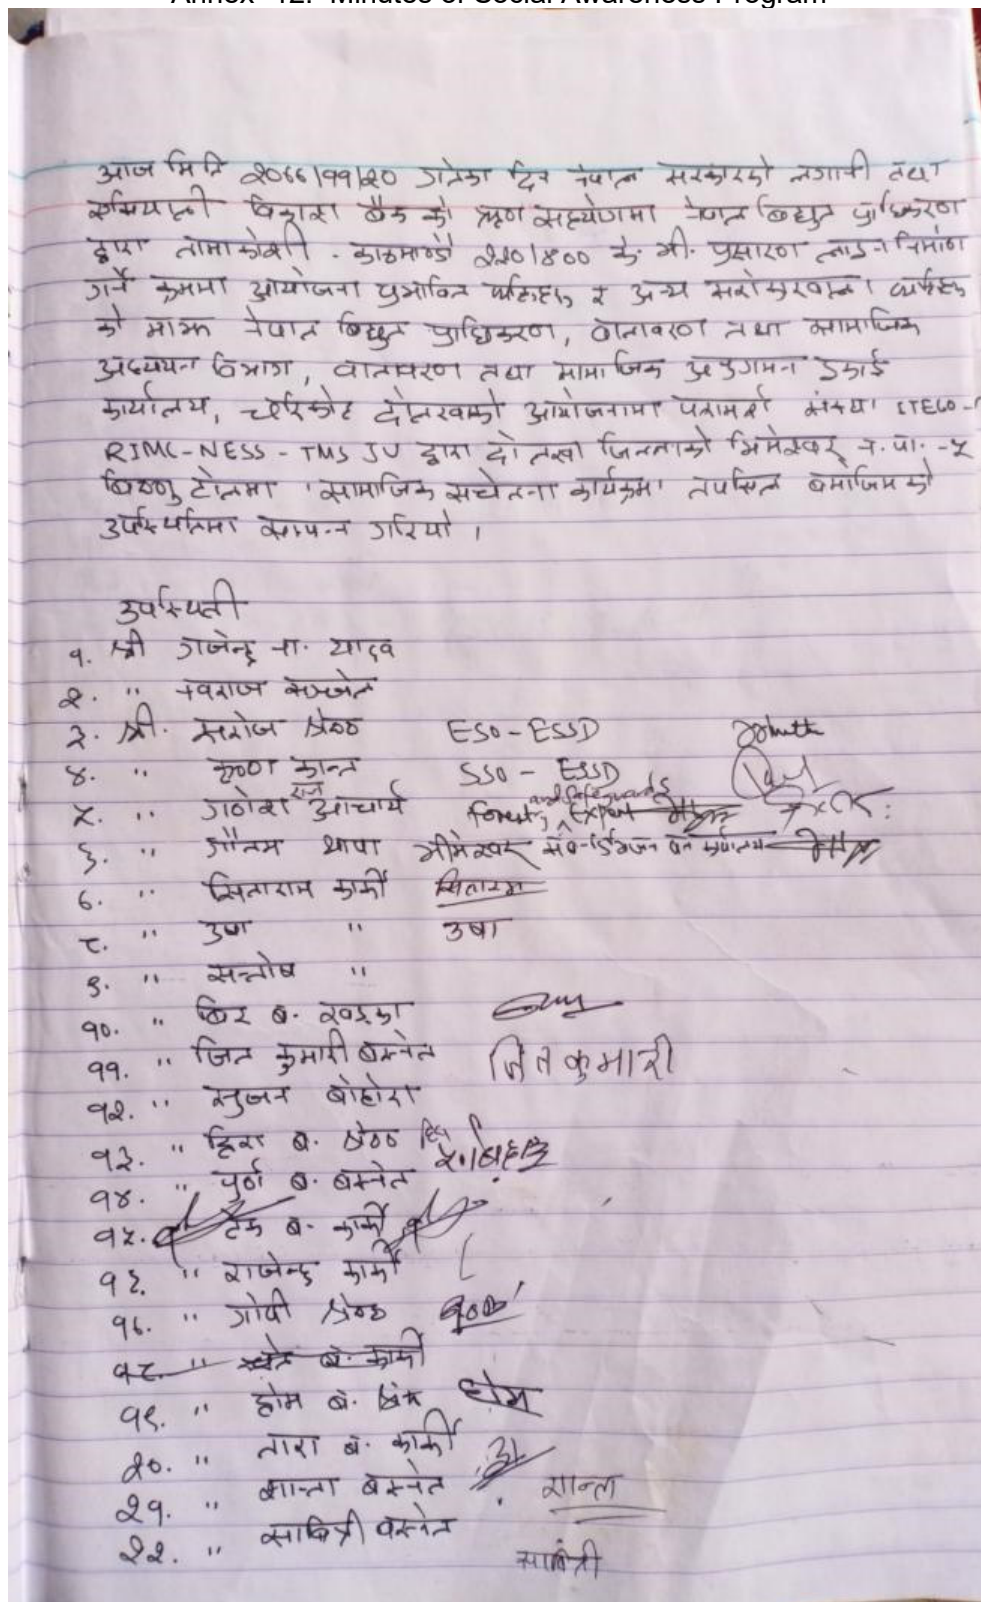 Annex- 12: Minutes of Social Awareness Program
आज मिति २०७७।११।२० गतेका दिन नेपाल सरकारको लगानी तथा
एसियाली विकास बैंक को ऋण सहयोगमा नेपाल बिद्युत प्राधिकरण
द्वारा तामाकोशी - काठमाण्डौ २२०/४०० के. भी. प्रसारण लाइन निर्माण
गर्ने क्रममा आयोजना प्रभावित व्यक्तिहरू र अन्य सरोकारवाला व्यक्तिहरू
को माझ नेपाल बिद्युत प्राधिकरण, वातावरण तथा सामाजिक
अध्ययन विभाग, वातावरण तथा सामाजिक अनुगमन इकाई
कार्यालय, चरिकोट दोलखाको आयोजनामा परामर्श संस्था ITECO-
RIMC-NESS-TMS JV द्वारा दोलखा जिल्लाको भिमेश्वर न.पा. -५
बिष्णु टोलमा 'सामाजिक सचेतना कार्यक्रम' तपसिल बमोजिमको
उपस्थितिमा सम्पन्न गरियो ।
उपस्थिती
१. श्री गजेन्द्र ना. यादव
२. " नवराज
३. श्री. सरोज श्रेष्ठ ESO-ESSD
४. " कृष्ण कान्त SSO - ESSD
५. " गणेश राज आचार्य Forest, and Safeguards Expert
६. " गौतम थापा भीमेश्वर सब-डिभिजन वन कार्यालय
७. " सिताराम कार्की सिताराम
८. " उषा " उषा
९. " सन्तोष "
१०. " बिर ब. खड्का
११. " जित कुमारी बस्नेत जित कुमारी
१२. " सुजन बोहोरा
१३. " हिरा ब. श्रेष्ठ
१४. " पुर्ण ब. बस्नेत
१५. टेक ब. कार्की
१६. " राजेन्द्र कार्की
१७. " गोपी श्रेष्ठ
१८. " ब. कार्की
१९. " होम ब. होम
२०. " तारा ब. कार्की
२१. " शान्ता बस्नेत शान्ता
२२. " सावित्री बस्नेत सावित्री